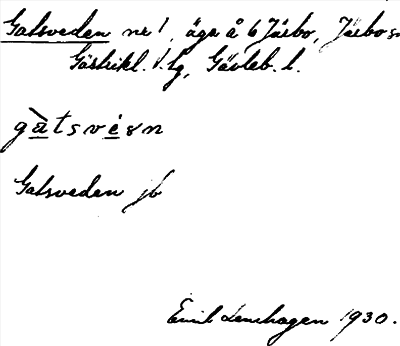 Gatsveden nr 1, äga å 6 Järbo, Järbo sn
Gästrikl. v. tg, Gävleb. l.
gàtsvéən
Gatsveden jb
Emil Lenshagen 1930.